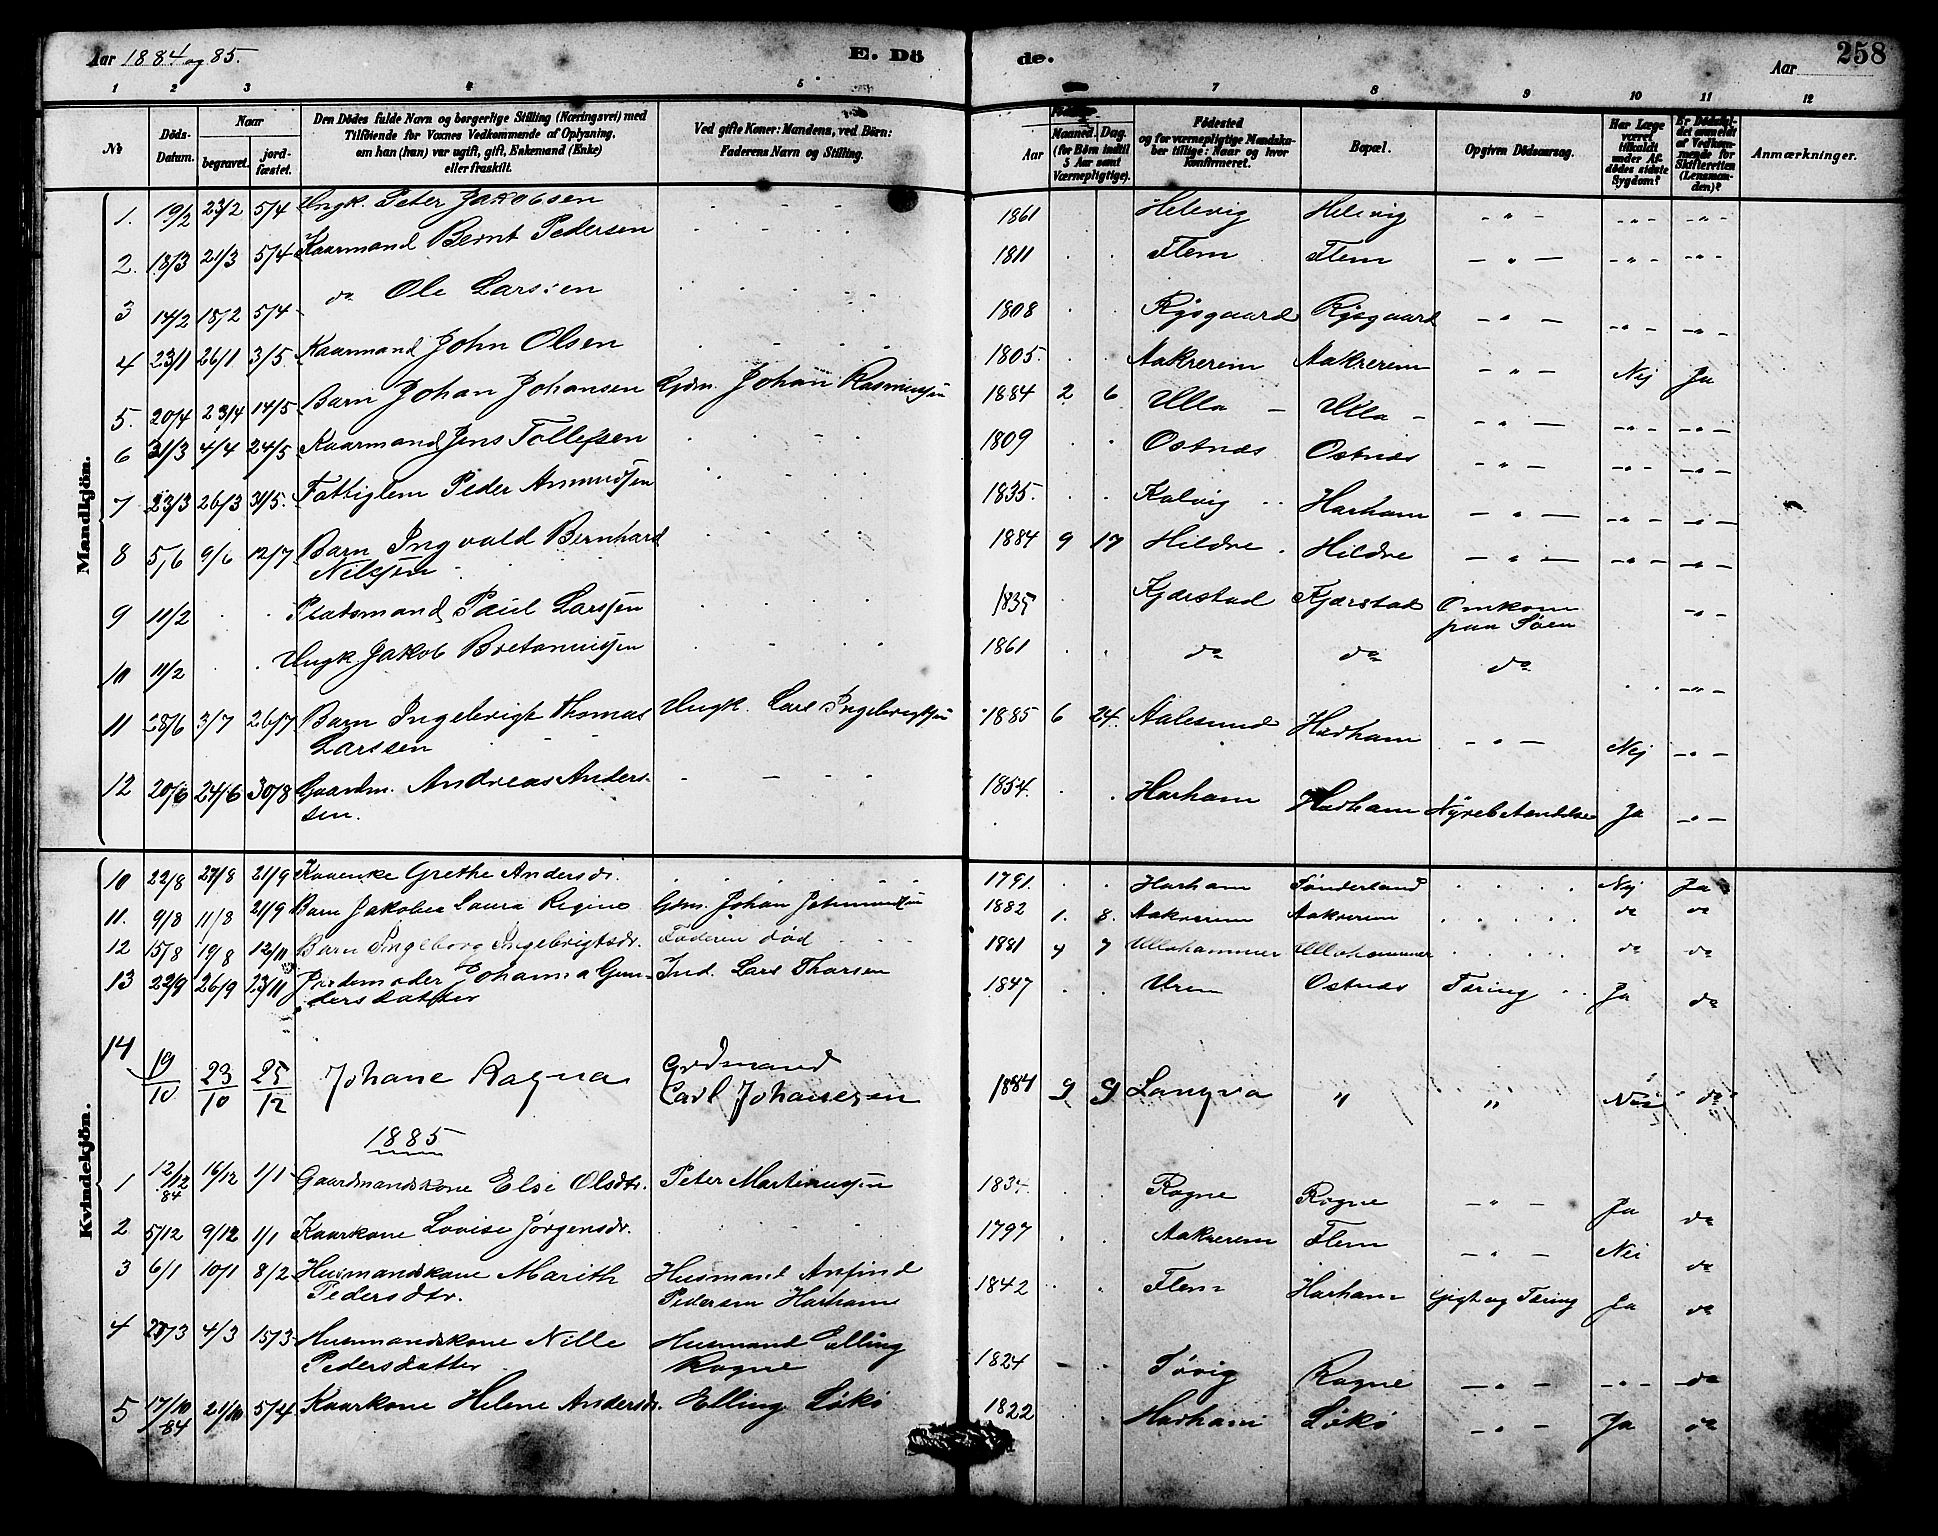 Aar 1884 og 85. E. Dö de. Aar 258
1 2 3 4 5 7 8 9 10 11 12
№ Döds-Datum. Naar begravet. jordfæstet. Den Dödes fulde Navn og borgerlige Stilling (Næringsvei) med Tilföiende for Voxnes Vedkommende af Oplysning, om han (hun) var ugift, gift, Enkemand (Enke) eller fraskilt. Ved gifte Koner: Mandens, ved Börn: Faderens Navn og Stilling. Aar Maaned. Dag. (for Börn indtil 5 Aar samt Værnepligtige). Födested og for værnepligtige Mandskaber tillige: Naar og hvor konfirmeret. Bopæl. Opgiven Dödsaarsag. Har Læge været tilkaldt under Afdödes sidste Sygdom? Er Dödsfaldet anmeldt af Vedkommende for Skifteretten (Lensmanden)? Anmærkninger.
Mandkjön.
1. 19/2 23/2 5/4 Ungk. Peter Jakobsen 1861 Helevig Helevig - " - - " - - " -
2. 18/3 21/3 5/4 Kaarmand Bernt Pedersen 1811 Flem Flem - " - - " - - " -
3 14/2 18/2 5/4 do Ole Larsen 1808 Rÿsgaard Rÿsgaard - " - - " - - " -
4 23/1 26/1 3/5 Kaarmand John Olsen 1805. Aakrerem Aakrerem - " - Nej Ja
5. 20/4 23/4 14/5 Barn Johan Johansen Gdm. Johan Rasmussen 1884 2 6 Ulla Ulla - " - - " - - " -
6 31/3 4/4 24/5 Kaarmand Jens Tollefsen 1809 Ostnæs Ostnæs - " - - " - - " -
7 23/3 26/3 31/5. Fattiglem Peder Amundsen 1835. Kalvig Harham - " - - " - - " -
8 5/6 9/6 12/7 Barn Ingvald Bernhard Nilssen 1884 9 17 Hildre Hildre - " - - " - - " -
9 11/2 Pladsmand Paul Larssen 1835 Kjærstad Kjærstad Omkom paa Søen - " -
10 11/2 Ungk Jakob 1861 do do do - " -
11 28/6 3/7 26/7 Barn Ingebrigt Thomas Larssen Ungk. Lars Ingebrigtsen 1885 6 24 Aalesund Harham - " - Nej - " -
12 20/6 24/6 30/8 Gaardm. Andreas Anderssen. 1854. Harham Harham Nyrebetændelse Ja - " -
Kvindekjön.
10 22/8 27/8 21/9 Kaarenke Grethe Andersdr. 1791. Harham Sønderland Nej Ja
11. 9/8 11/8 21/9 Barn Jakobea Laura Regine Gdm. Johan 1882 1. 8. Aakrerem Aakrerem do do
12 15/8 19/8 12/11 Barn Ingeborg Ingebrigtsdr. Faderen død 1881 4 7 Ullahammer Ullahammer do do
13 22/9 26/9 23/11 Jordemoder Johanna Gundersdatter Ind. Lars Thorsen 1847 Urem Ostnæs Tæring Ja do
14 19/10 23/10 25/12 Johane Ragna Grdmand Carl Johansen 1884 9 9 Langva " " Nei do
1885
1 12/12 84 16/12 1/1 Gaardmandskone Else Olsdtr. Peter Martinussen 1835. Rogne Rogne - " - Ja do
2 5/12 9/12 1/1 Kaarkone Lovise Jørgensdr. 1797 Aakrerem Flem - " - Nei do
3 6/1 10/1 8/2 Husmandskone Marith Pedersdtr. Husmand Anfind Pedersen Harham 1842 Flem Harham Gigt og Tæring Ja do
4 28/3 4/3 15/3 Husmandskone Nille Pedersdatter Husmand Elling Rogne 1824 Søvig Rogne - " - - " - do
5 17/10 84 21/10 5/4 Kaarkone Helene Andersdr. Elling Løkø 1822 Harham Løkø - " - Ja do